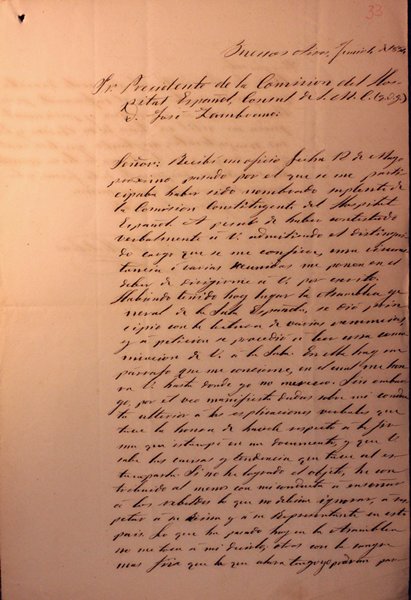 33
Buenos Aires, Junio de
Sr. Presidente de la Comision del Hos-
pital Español, Consul de S. M. C. (q. D. g.)
D. José Zambrano.
Señor: Recibí un oficio fecha 12 de Mayo
próximo pasado por el que se me parti-
cipaba haber sido nombrado suplente de
la Comision Constituyente del Hospital
Español. A pesar de haber contestado
verbalmente á U. admitiendo el distingui-
do cargo que se me confiere, una circuns-
tancia i varias me ponen en el
deber de dirigirme á U. por escrito.
Habiendo tenido hoy lugar la Asamblea ge-
neral de la Sala Española, se dió prin-
cipio con la lectura de varias renuncias,
y á peticion se procedió á leer una comu-
nicacion de U. á la Sala. En ella hay un
párrafo que me concierne, en el cual me hon-
ra U. hasta donde yo no merezco. Sin embar-
go, por el veo manifiesta dudas sobre mi conduc-
ta ulterior á las esplicaciones verbales que
tuve la honra de hacerle respecto á la fir-
ma que estampé en un documento, y que U.
sabe las causas y tendencia que tuve al es-
tamparla. Si no he logrado el objeto, he con-
tribuido al menos con mi conducta á enseñar
á los rebeldes lo que no debian ignorar, á res-
petar á su Reina y á su Representante en este
pais. Lo que ha pasado hoy en la Asamblea
no me toca á mi decirlo, otros con la sangre
mas fria que la que ahora tengo podran